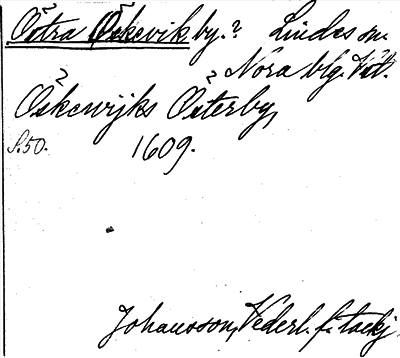 Östra Öskevik by.? Lindes sn.
Nora blg. Vstl.
Öskewijks Österby,
S.50. 1609.
Johansson, Vederl. f. tackj.